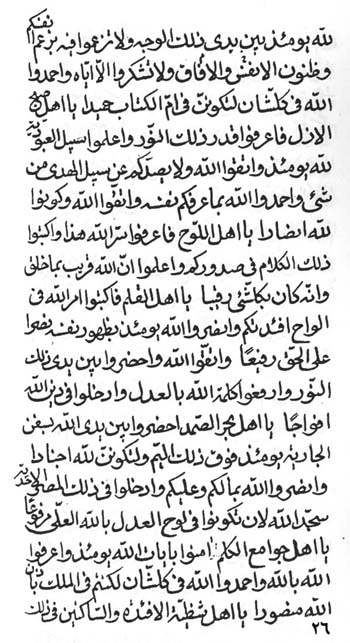 لله يومئذ بين يدى ذلك الوجه ولا تزعوا فيه بزعم انفسكم
وظنون الانفسى والافاق ولا تشكروا الا اياه واحمدوا
الله فى كلشان لتكونن فى ام الكتاب حميدا يا اهل صبح
الازل فاعرفوا قدر ذلك النور واعلموا سبل العبودية
لله يومئذ واتقوا الله ولا يصدكم عن سبيل الهدى من
شئ واحمدوا الله بما عرفكم نفسه واتقوا الله وكونوا
لله انصارا يا اهل اللوح فاعرفوا سر الله هذا واكتبوا
ذلك الكلام فى صدوركم واعلموا ان الله قريب بما خلق
وانه كان بكلشئ رقيبا يا اهل القلم فاكتبوا امر الله فى
الواح افئدتكم وانصروا الله يومئذ بظهور نفسه
على الحق رفيعا واتقوا الله واحضروا بين يدى ذلك
النور وارفعوا كلمة الله بالعدل وادخلوا فى دين الله
افواجا يا اهل بحر الصمد احضروا بين يدى الله بسفن
الجارية يومئذ فوق ذلك اليم ولتكونن لله اجنادا
وانصروا الله بمالكم وعليكم وادخلوا فى ذلك المصلى الاحدية
سجد الله لان تكونوا فى لوح العدل بالله العلى مرفوعا
يا اهل جوامع الكلم امنوا بايات الله يومئذ واعرفوا
الله بالله واحمدوا الله فى كلشان لكنتم فى الملك باذن
الله منصورا يا اهل شظية الافئدة والساكنين فى ذلك
٢٦